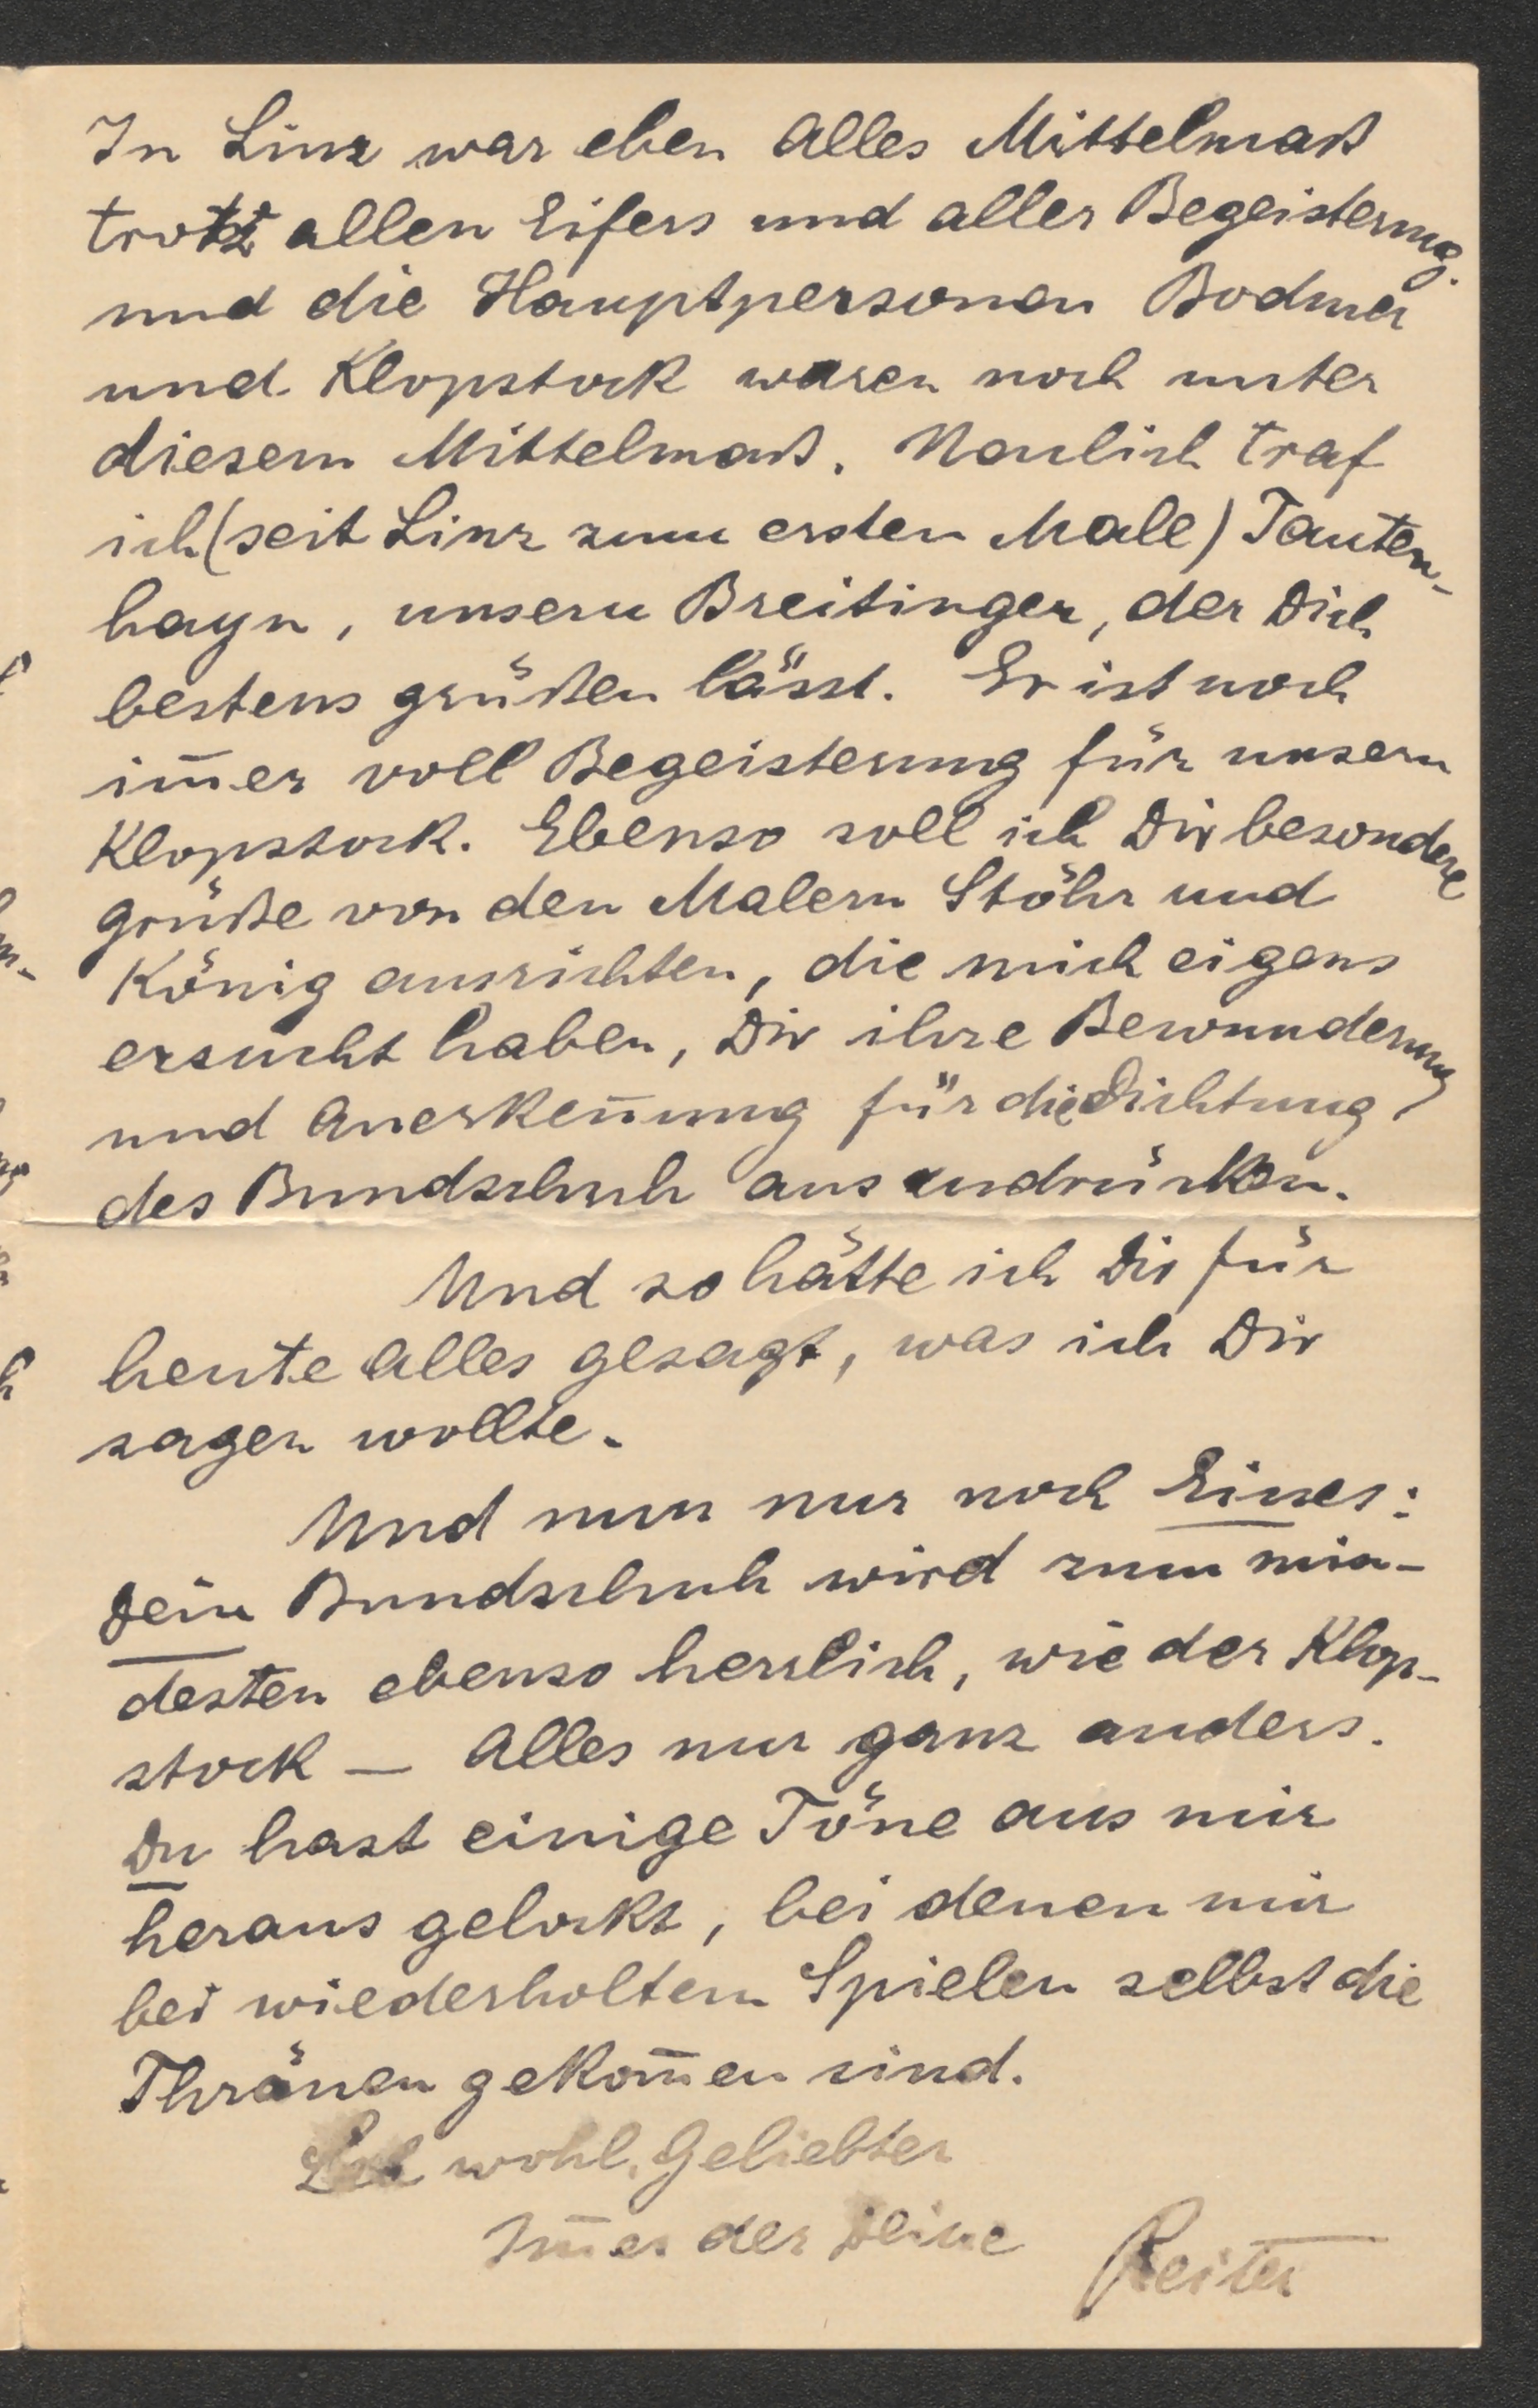 In Linz war eben Alles Mittelmaß
trotz allen Eifers und aller Begeisterung.
und die Hauptpersonen Bodmer
und Klopstock waren noch unter
diesem Mittelmaß. Neulich traf
ich (seit Linz zum ersten Male) Tauten-
hayn, unsern Breitinger, der Dich
bestens grüßen lässt. Er ist noch
im̅er voll Begeisterung für unsern
Klopstock. Ebenso soll ich Dir besondere
Grüße von den Malern Stöhr und
König ausrichten, die mich eigens
ersucht haben, Dir ihre Bewunderung
und Anerken̅ung für die Dichtung
des Bundschuh auszudrücken.
Und so hätte ich Dir für
heute Alles gesagt, was ich Dir
sagen wollte.
Und nun nur noch Eines:
Dein Bundschuh wird zum min-
desten ebenso herrlich, wie der Klop-
stock — Alles nur ganz anders.
Du hast einige Töne aus mir
heraus gelockt, bei denen mir
bei wiederholtem Spielen selbst die
Thränen gekom̅en sind.
Leb wohl, Geliebter
Im̅er der Deine
Reiter